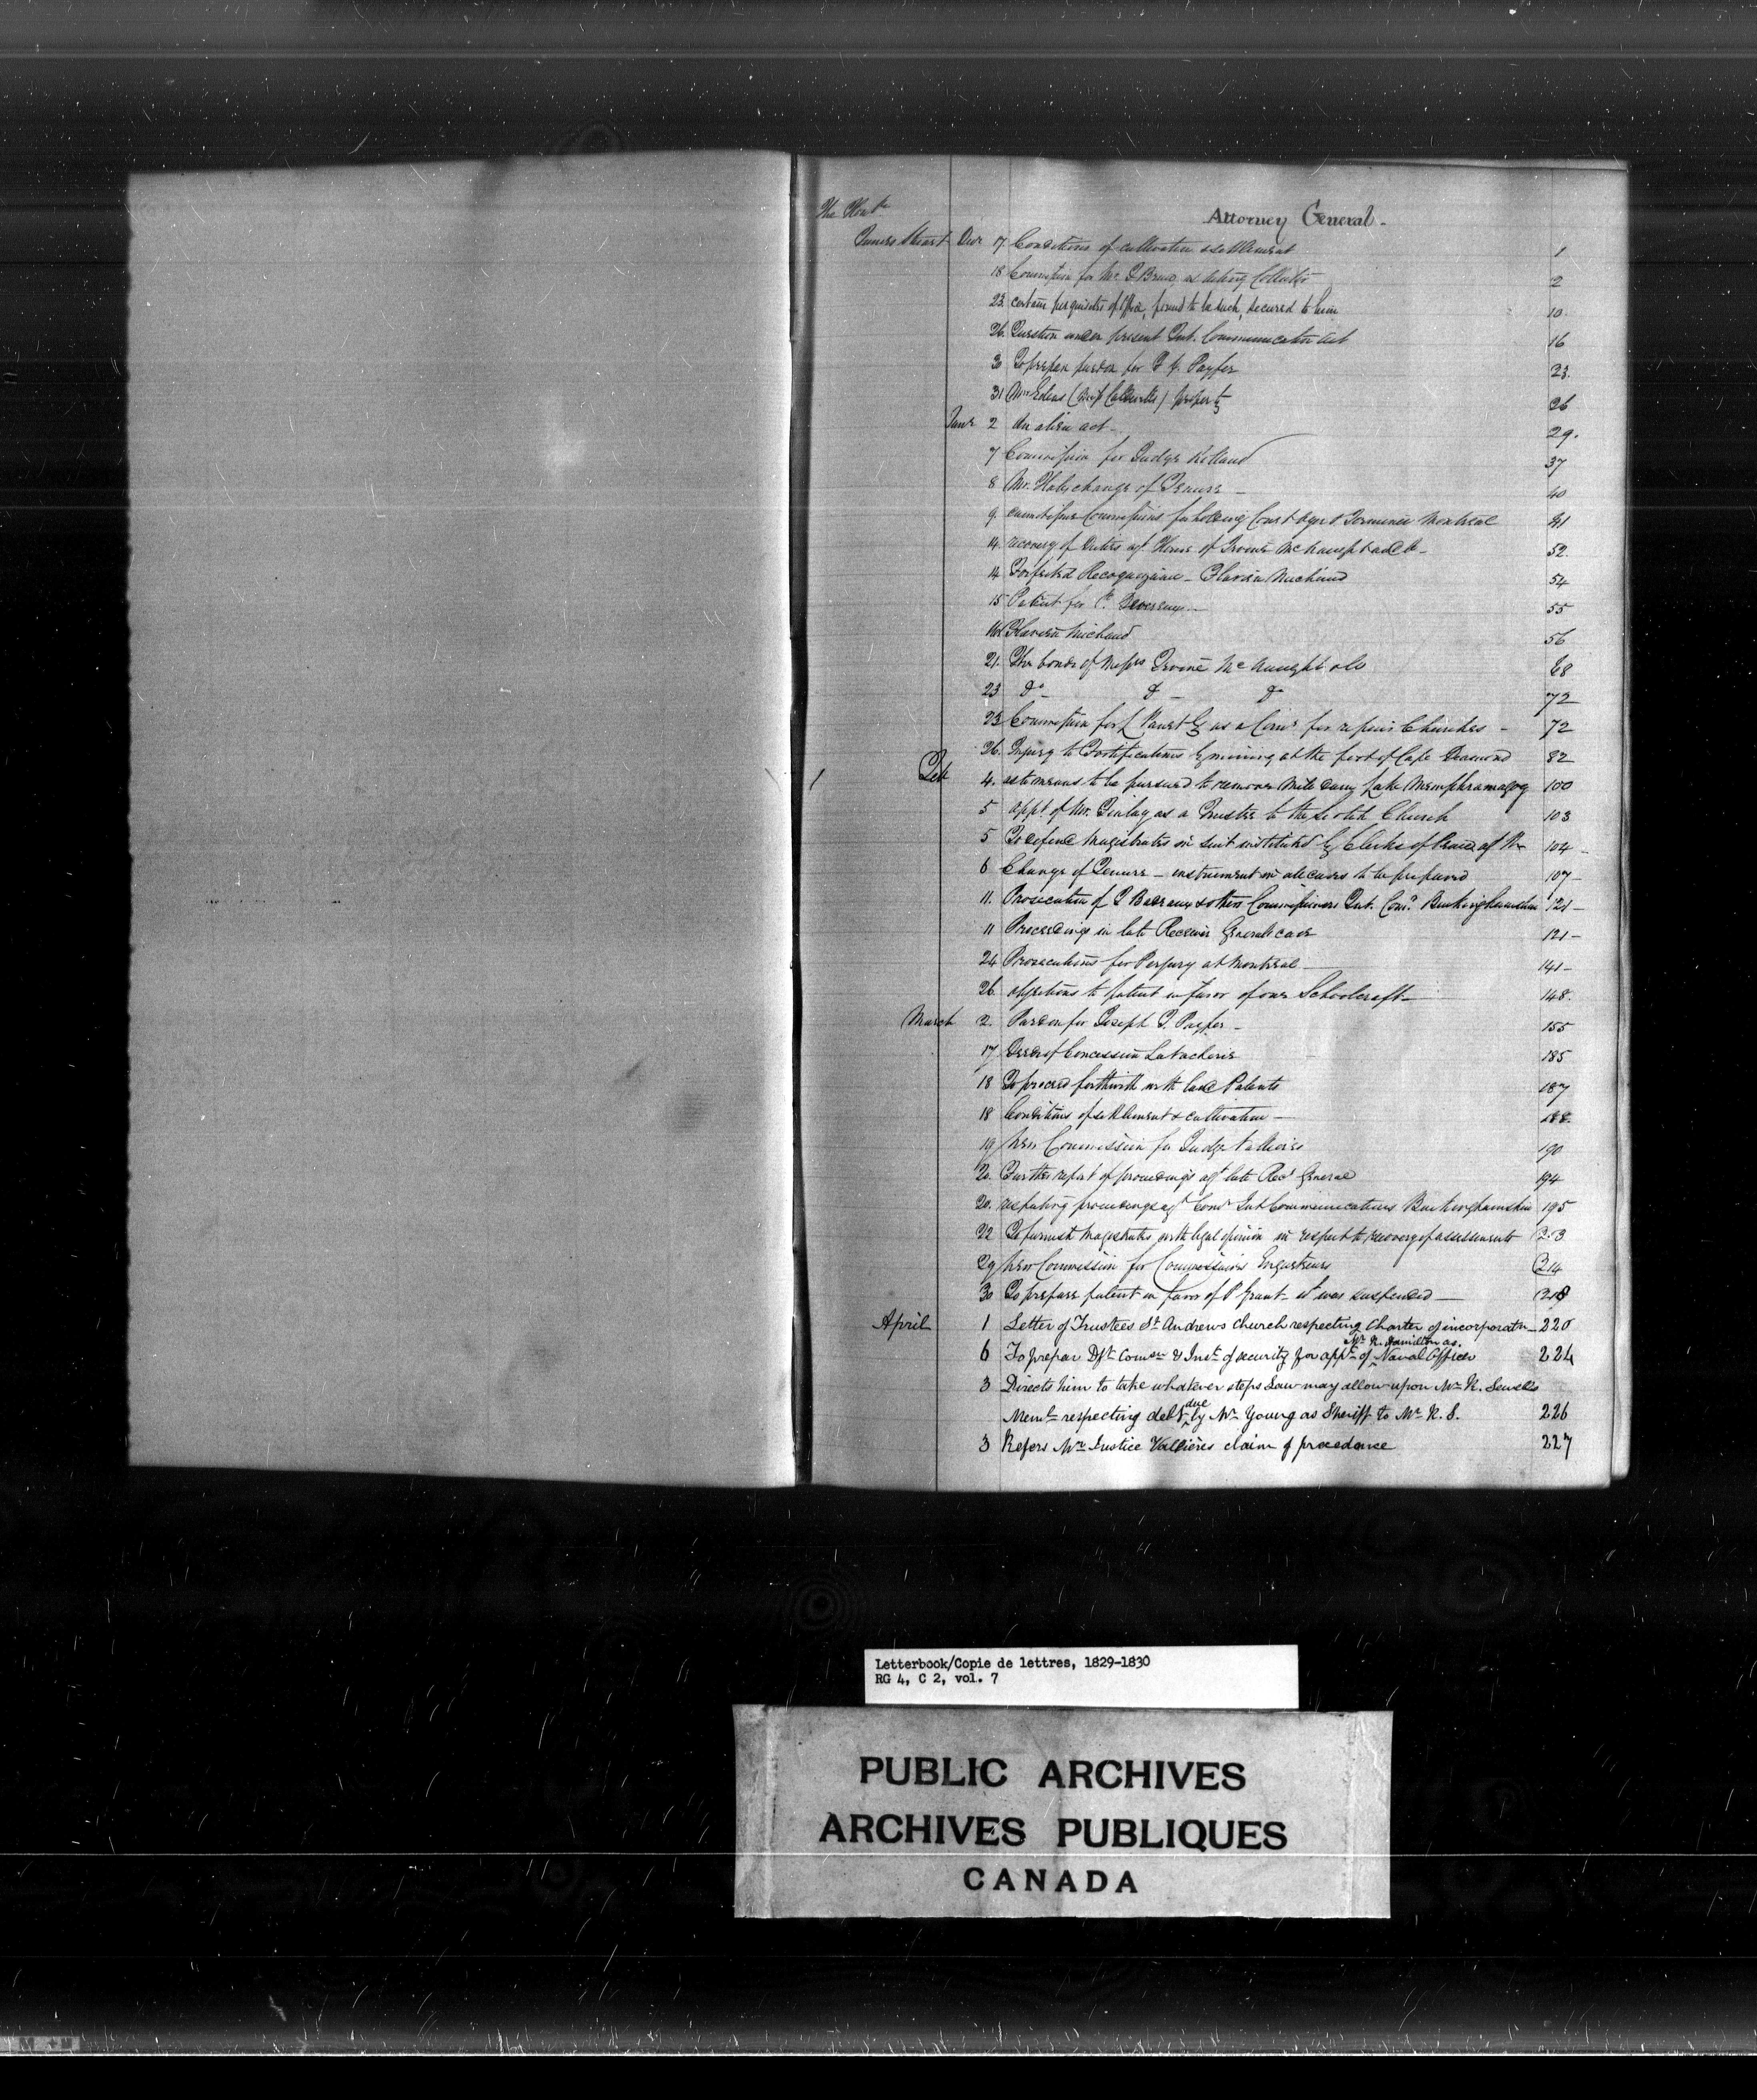 The Honble
Attorney General -
James Stuart Decr 17 Conditions of cultivation & settlement 1
18 Commission for Mr as acting Collector 2
23. certain perquisites of Office, found to be such, secured to him 10.
26. Question under present Int. Communication Act 16
30 To prepare pardon for Payfer 23.
31 property 26
Jany 2 An alien act - 29.
7 Commission for Judge Rolland 37
8 Mr. change of Tenure - 40
9. Commissions for holding Court Oyer & Terminer Montreal 41
14. recovery of Duties agt. House of Irvine McNaught and Co - 52.
14 Forfeited Recognizance - Flavien Michaud 54
15 Patent for 55
Flavien Michaud 56
21. The bonds of Messrs Irvine McNaught & Co 68
23 do - do - do 72
23 Commission for as a Comr for repair Churches - 72
26. Injury to Fortifications by mining at the foot of Cape Diamond 82
Feb 4. as to means to be pursued to remove Mill dam, Lake Memphramagog 100
5 appt. of Mr. Finlay as a Trustee to the Scotch Church 103
5 To defend Magistrates in suit instituted by Clerks of Peace 104 -
6 Change of Tenure - instrument in all cases to be prepared 107 -
11. Prosecution of & others Commissioners Int. Comn. Buckinghamshire 121 -
11 Proceedings in late Receiver Generals case 121 -
24 Prosecutions for Perjury at Montreal - 141 -
26. objections to patent in favor of one Schoolcraft - 148.
March 2. Pardon for Joseph Payfer - 155
17 Deed of Concession 185
18 To proceed forthwith with land Patents 187
18 Conditions of settlement & cultivation - 188.
19 New Commission for Judge Vallieres 190
20. Further report of proceedings agt late Recr General 194
20. respecting proceedings agt Comrs Int Communications Buckinghamshire 195
22 To furnish Magistrates with legal opinion in respect to recovery of assessments 203
29 New Commission for Commissaires Enquêteurs 214
30 To prepare patent in favor of P Grant it was suspended - 218
April 1 Letter of Trustees St. Andrews church respecting Charter of incorporatn - 220
Mr. R. Hamilton as
6 To prepare Dft. Comsn & Inst. of security for appt. of Naval Officer 224
3 Directs him to take whatever steps Law may allow upon Mr. R. Sewells
Meml. respecting debt due by Mr. Young as Sheriff to Mr. R. S. 226
3 Refers Mr. Justice Vallières claim of precedence 227
Letterbook/Copie de lettres, 1829-1830
RG 4, C 2, vol. 7
PUBLIC ARCHIVES
ARCHIVES PUBLIQUES
CANADA